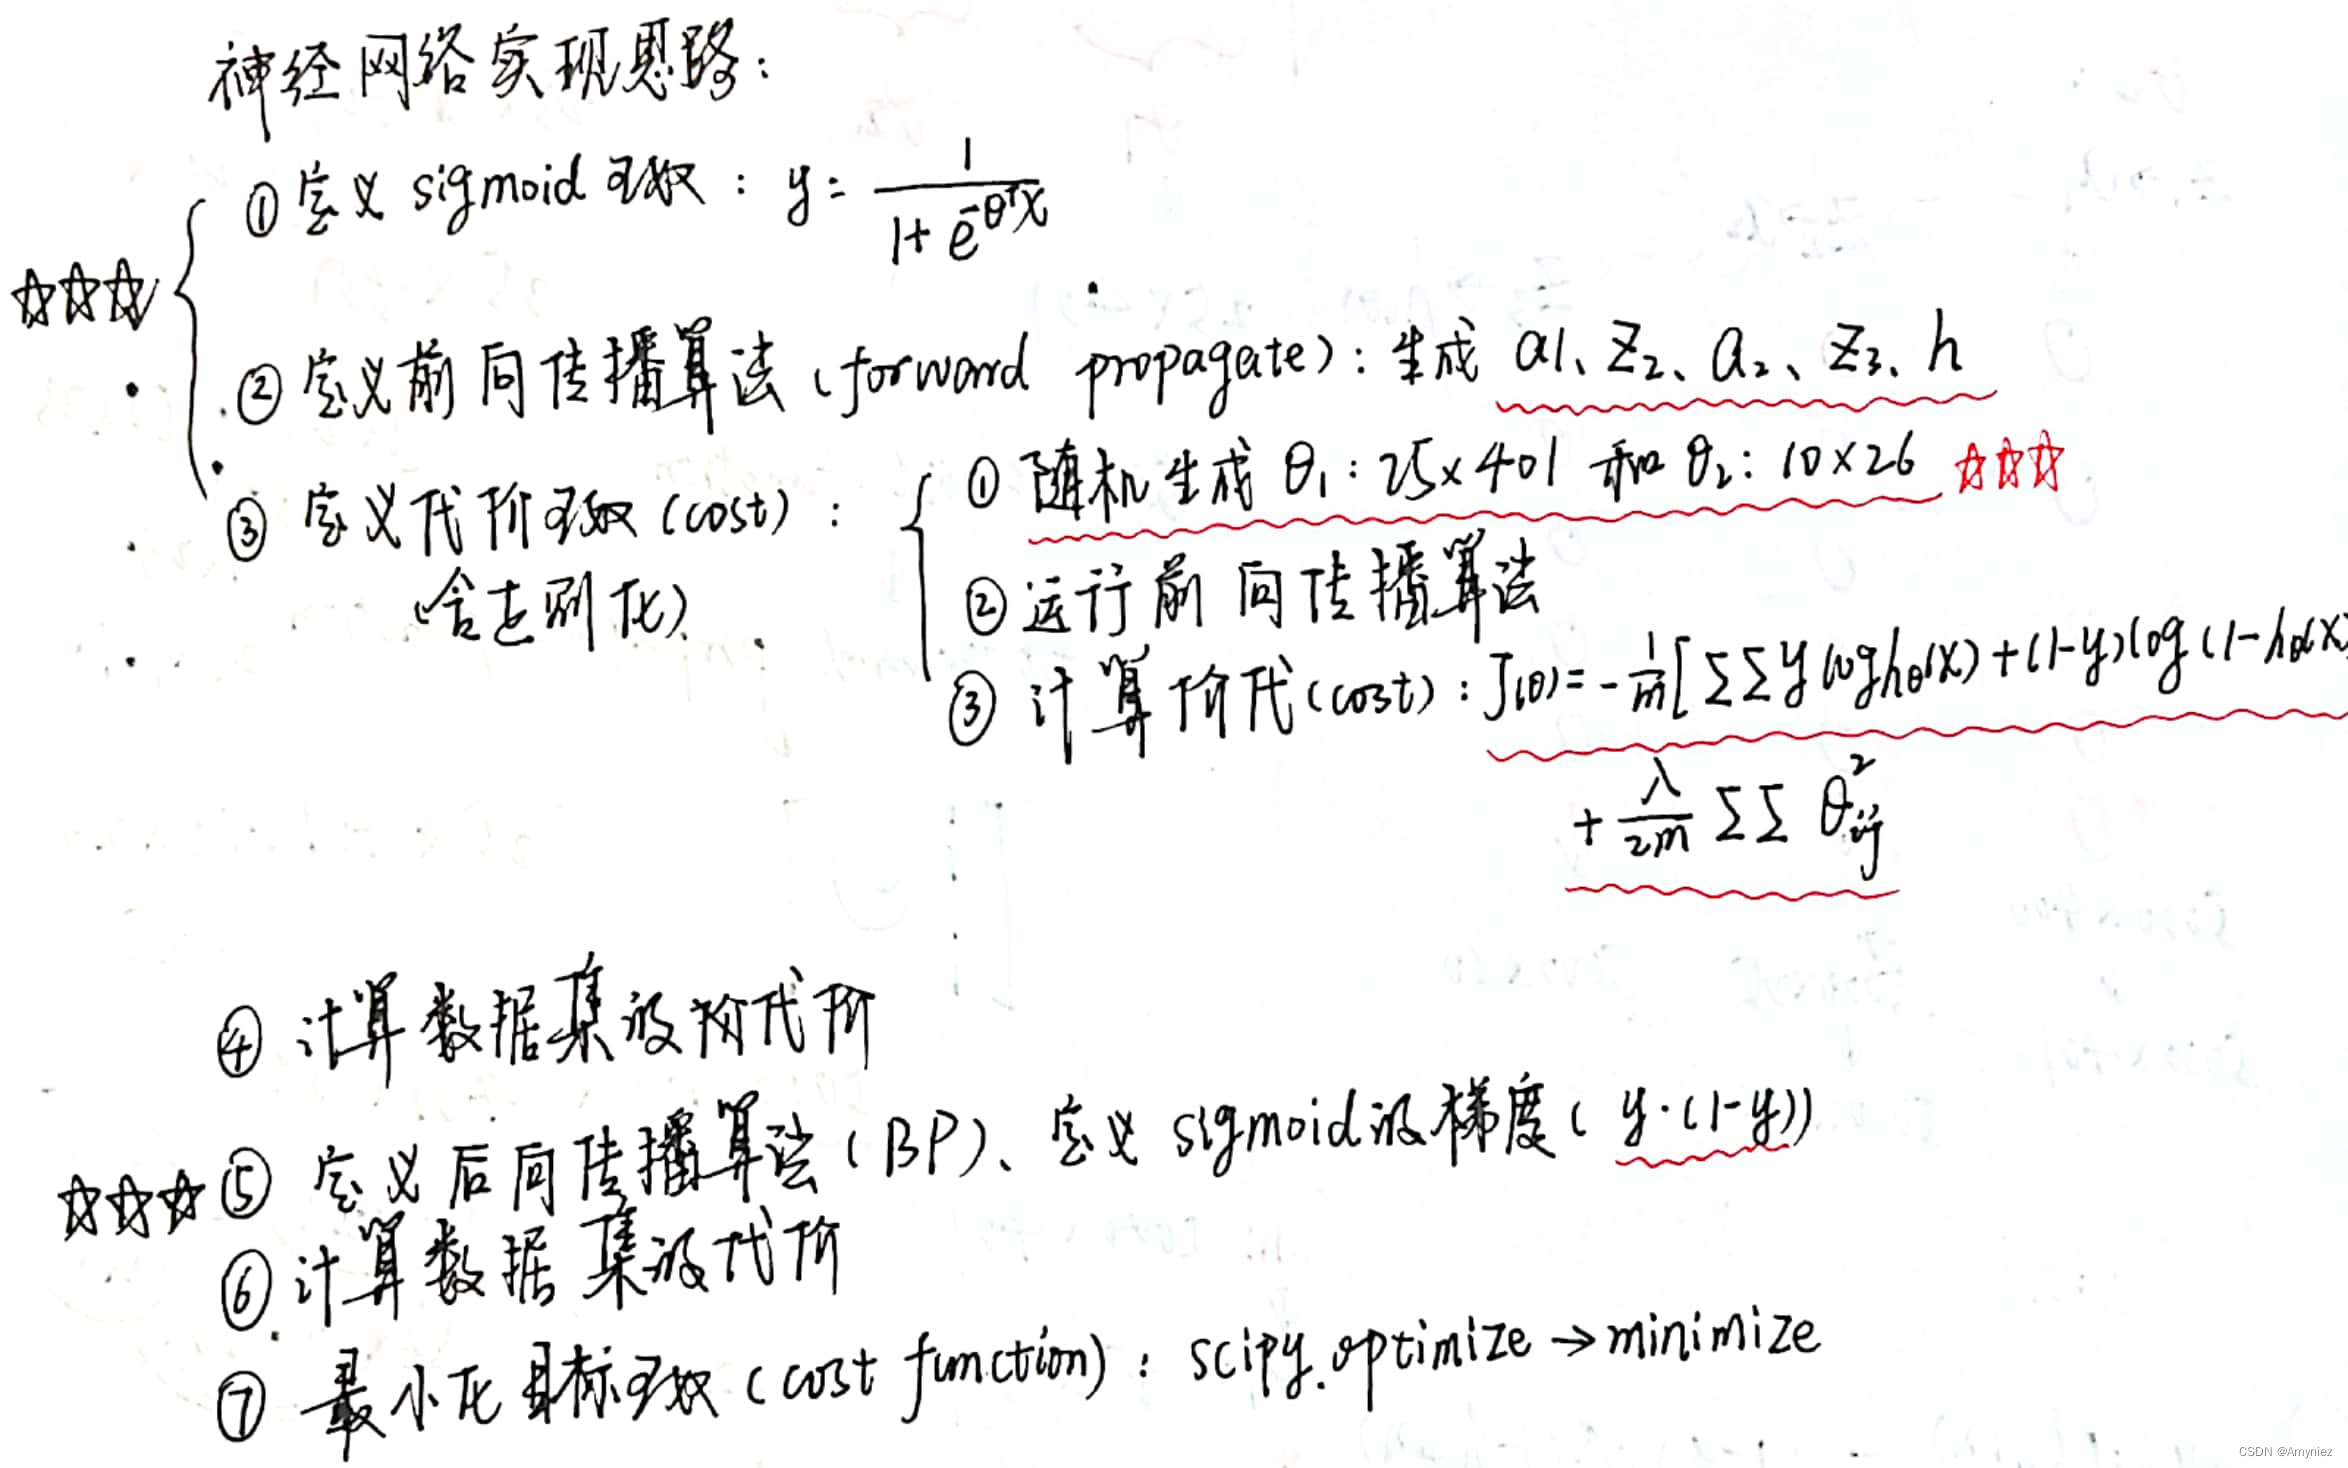 神经网络实现思路：
① 定义 sigmoid 函数：y = 1 / (1 + e^(-θᵀx))
☆☆☆
② 定义前向传播算法（forward propagate）：生成 a1、z₂、a₂、z₃、h
③ 定义代价函数（cost）：
（含正则化）
① 随机生成 θ₁：25×401 和 θ₂：10×26 ☆☆☆
② 运行前向传播算法
③ 计算价代（cost）：J(θ) = -1/m [ΣΣ y log hθ(x) + (1-y) log (1-hθ(x)
+ λ/2m ΣΣ θ²ij
④ 计算数据集的价代价
☆☆☆ ⑤ 定义后向传播算法（BP）、定义 sigmoid 的梯度（y·(1-y)）
⑥ 计算数据集的代价
⑦ 最小化目标函数（cost function）：scipy.optimize → minimize
CSDN @Amyniez